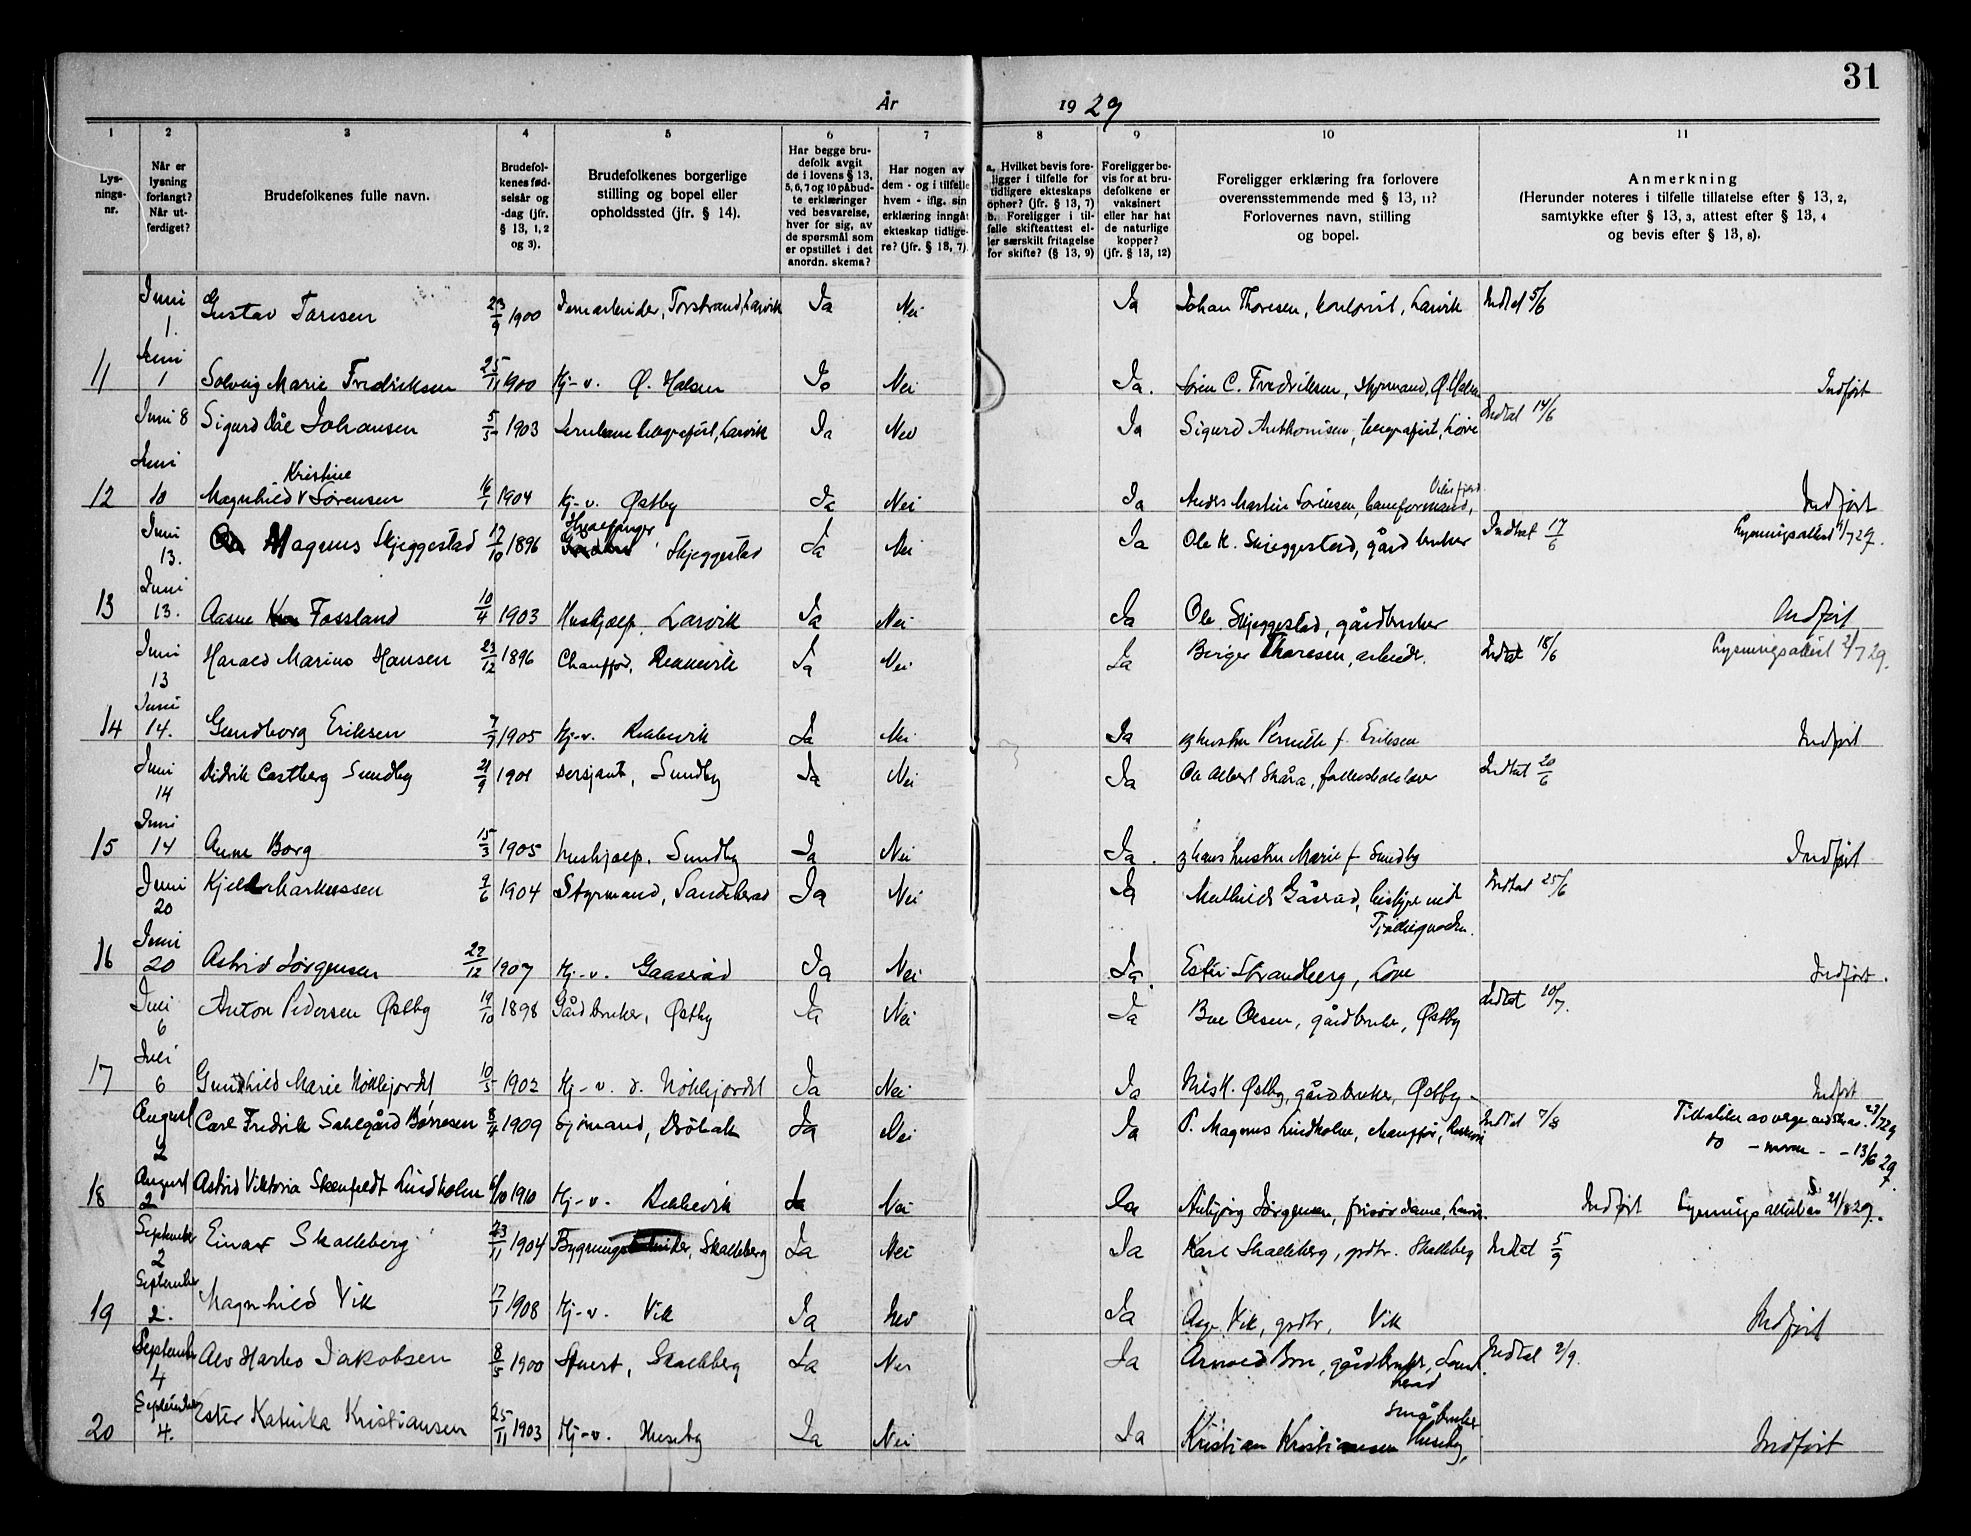 31
År 1929
1 2 3 4 5 6 7 8 9 10 11
Lys-
nings-
nr.
Når er
lysning
forlangt?
Når ut-
ferdiget?
Brudefolkenes fulle navn.
Brudefol-
kenes fød-
selsår og
-dag (jfr.
§ 13, 1, 2
og 3).
Brudefolkenes borgerlige
stilling og bopel eller
opholdssted (jfr. § 14).
Har begge bru-
defolk avgit
de i lovens § 13,
5, 6, 7 og 10 påbud-
te erklæringer
ved besvarelse,
hver for sig, av
de spørsmål som
er opstillet i det
anordn. skema?
Har nogen av
dem - og i tilfelle
hvem - iflg. sin
erklæring inngåt
ekteskap tidlige-
re? (jfr. § 13, 7).
a. Hvilket bevis fore-
ligger i tilfelle for
tidligere ekteskaps
ophør? (jfr. § 13, 7)
b. Foreligger i til-
felle skifteattest el-
ler særskilt fritagelse
for skifte? (§ 13, 9)
Foreligger be-
vis for at bru-
defolkene er
vaksinert
eller har hat
de naturlige
kopper?
(jfr. § 13, 12)
Foreligger erklæring fra forlovere
overensstemmende med § 13, 11?
Forlovernes navn, stilling
og bopel.
Anmerkning
(Herunder noteres i tilfelle tillatelse efter § 13, 2,
samtykke efter § 13, 3, attest efter § 13, 4
og bevis efter § 13, 8).
Juni 1. Gustav Toresen 23/9 1900 Jernarbeider, Torstrand, Larvik Ja Nei Ja Johan Thoresen, Larvik Indtat 5/6
11 Juni 1 Solveig Marie Fredriksen 25/11 1900 Hj-v. Ø. Halsen Ja Nei Ja. Søren C. Fredriksen, styrmand, Ø. Halsen Indført
Juni 8 Sigurd Dåe Johansen 5/5 1903 Larvik Ja Nei Ja Sigurd Anthonisen, telegrafist, Løve Indtat 14/6
12 Juni 10 Magnhild Kristine Sørensen 16/1 1904 Hj-v. Østby Ja Nei Ja Anders Martin Sørensen, baneformand, Indført
Juni 13. Magnus Skjeggestad 17/10 1896 Hvalfanger Skjeggestad Ja Nei Ja Ole K. Skjeggestad, gårdbruker Indtat 17/6 Lysningsattest 1/7 29.
13 Juni 13. Aasne Fossland 10/4 1903 Hushjælp, Larvik Ja Nei Ja Ole Skjeggestad, gårdbruker Indført
Juni 13 Harald Marius Hansen 23/12 1896 Chauffør, Rekkevik Ja Nei Ja Birger Thoresen, arbeider. Indtat 18/6 Lysningsattest 2/7 29.
14 Juni 14. Gundborg Eriksen 7/7 1905 Hj-v. Rekkevik Ja Nei Ja og hustru Pernille f. Eriksen Indført
Juni 14 Didrik Castberg Sundby 21/9 1901 sersjant, Sundby Ja Nei Ja Ole Albert Skåra, Indtat 20/6
15 Juni 14 Anne Borg 15/3 1905 hushjælp, Sundby Ja Nei Ja. og hans hustru Marie f. Sundby Indført
Juni 20 Kjell Markussen 9/6 1904 Styrmand, Sandeherad Ja Nei Ja Mathilde Gåserud, Indtat 25/6
16 Juni 20 Astrid Jørgensen 22/12 1907 Hj-v. Gaaserød Ja Nei Ja. Ester Strandberg, Løve Indført.
Juli 6 Anton Pedersen Østby 19/10 1898 Gårdbruker, Østby Ja Nei Ja Olsen, gårdbruker, Østby Indtat 10/7.
17 Juli 6 Gunhild Marie Nøklejordet 10/5 1902 Hj-v. Nøklejordet Ja Nei Ja Nils K. Østby, gårdbruker, Østby Indført
August 2 Carl Fredrik Børresen 8/4 1909 Sjømand, Drøbak Ja Nei Ja P. Magnus Lindholm, chauffør, Rekkevik Indtat 7/8 23/7 29
13/6 29
18 August 2 Astrid Viktoria Lindholm 1910 Hj-v. Rekkevik Ja Nei Ja Jørgensen, frisørdame, Larvik. Indført Lysningsattest 21/8 29.
September 2 Einar Skalleberg 23/11 1904 Skalleberg Ja Nei Ja Karl Skalleberg, grdbr. Skalleberg Indtat 5/9
19 September 2. Magnhild Vik 17/1 1908 Hj-v. Vik Ja Nei Ja Vik, grdbr, Vik Indført
September 4 Jakobsen 8/5 1900 Stuert, Skalleberg Ja Nei Ja gårdbruker, Indtat 2/9.
20 September 4. Ester Katrika Kristiansen 25/11 1903 Hj-v. Huseby Ja Nei Ja Kristian Kristiansen småbruker Huseby, Indført